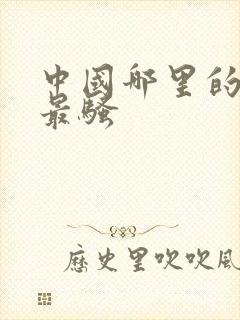 中國哪里的
最骚
歷史里吹吹風